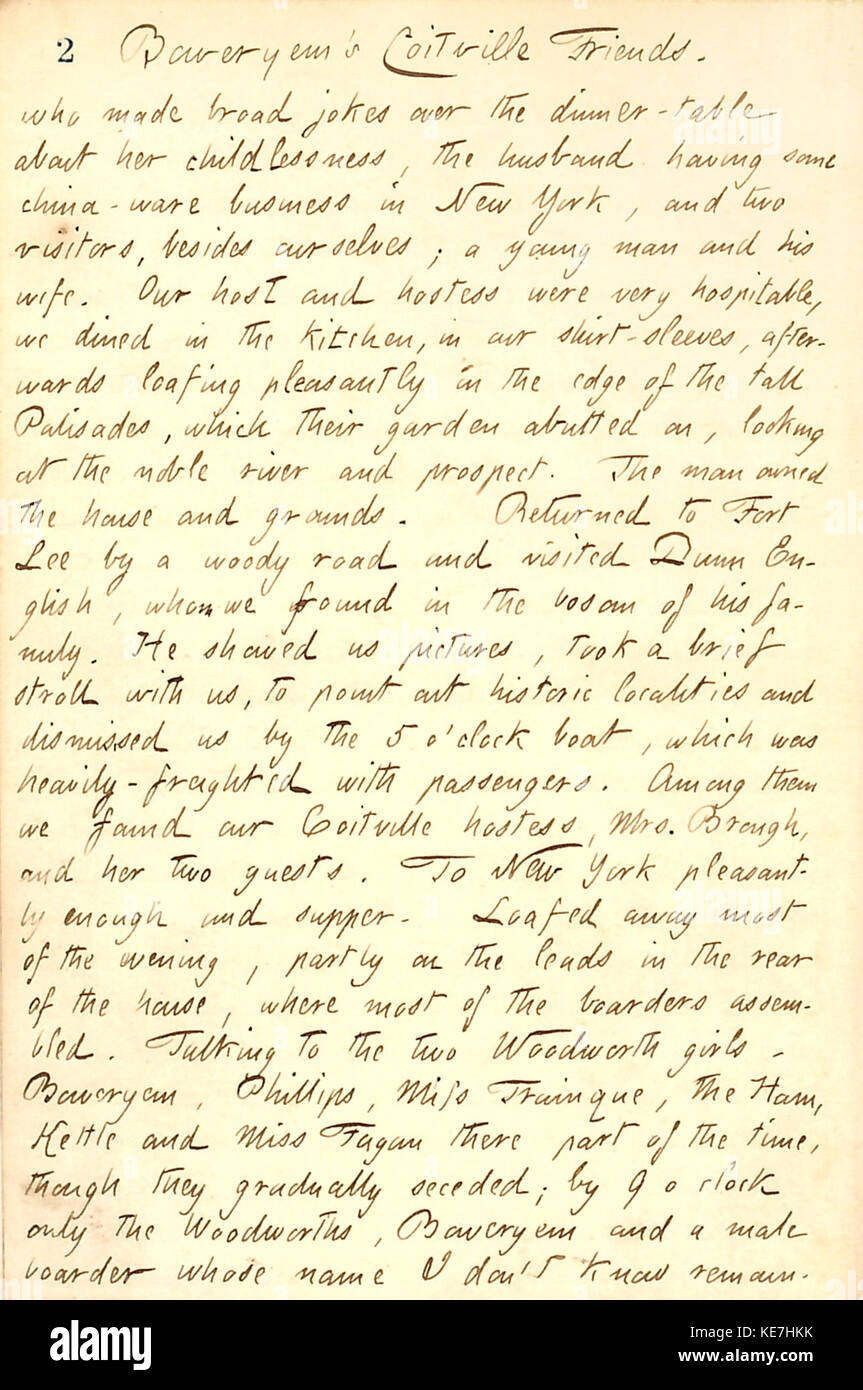 2 Boweryem's Coitville Friends.
who made broad jokes over the dinner-table
about her childlessness, the husband having some
china-ware business in New York, and two
visitors, besides ourselves; a young man and his
wife. Our host and hostess were very hospitable,
we dined in the kitchen, in our shirt-sleeves, after-
wards loafing pleasantly in the edge of the tall
Palisades, which their garden abutted on, looking
at the noble river and prospect. The man owned
the house and grounds. Returned to Fort
Lee by a woody road and visited Dunn En-
glish, whom we found in the bosom of his fa-
mily. He showed us pictures, took a brief
stroll with us, to point out historic localities and
dismissed us by the 5 o'clock boat, which was
heavily-freighted with passengers. Among them
we found our Coitville hostess, Mrs. Brough,
and her two guests. To New York pleasant-
ly enough and supper. Loafed away most
of the evening, partly on the leads in the rear
of the house, where most of the boarders assem-
bled. Talking to the two Woodworth girls -
Boweryem, Phillips, Miss Trainque, the Ham,
Kettle and Miss Fagan there part of the time,
though they gradually seceded; by 9 o clock
only the Woodworths, Boweryem and a male
boarder whose name I don't know remain-
alamy
Image ID: KE7HKK
www.alamy.com